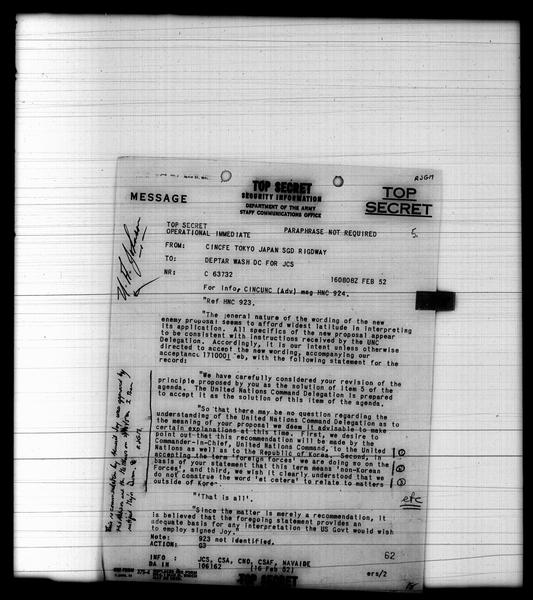 RJGM
TOP SECRET
SECURITY INFORMATION
DEPARTMENT OF THE ARMY
STAFF COMMUNICATIONS OFFICE
MESSAGE
TOP
SECRET
TOP SECRET
OPERATIONAL IMMEDIATE PARAPHRASE NOT REQUIRED 5.
FROM: CINCFE TOKYO JAPAN SGD RIGDWAY
TO: DEPTAR WASH DC FOR JCS
NR: C 63732 160808Z FEB 52
For info, CINCUNC (Adv) msg HNC 924.
"Ref HNC 923.
"The jeneral nature of the wording of the new
enemy proposal seems to afford widest latitude in interpreting
its application. All specifics of the new proposal appear
to be consistent with instructions received by the UNC
Delegation. Accordingly, it is our intent unless otherwise
directed to accept the new wording, accompanying our
acceptance 171000I eb, with the following statement for the
record:
"We have carefully considered your revision of the
principle proposed by you as the solution of item 5 of the
agenda. The United Nations Command Delegation is prepared
to accept it as the solution of this item of the agenda.
"So that there may be no question regarding the
understanding of the United Nations Command Delegation as to
the meaning of your proposal we deem it advisable to make
certain explanations at this time. First, we desire to
point out that this recommendation will be made by the
Commander-in-Chief, United Nations Command, to the United
Nations as well as to the Republic of Korea. Second, in
accepting the term 'foreign forces' we are doing so on the
basis of your statement that this term means 'non-Korean
Forces', and third, we wish it clearly understood that we
do not construe the word 'et cetera' to relate to matters
outside of Kore
etc
"'That is all'.
"Since the matter is merely a recommendation, it
is believed that the foregoing statement provides an
adequate basis for any interpretation the US Govt would wish
to employ signed Joy."
Note: 923 not identified.
ACTION: G3
62
INFO : JCS, CSA, CNO, CSAF, NAVAIDE
DA IN 106162 (16 Feb 52) ers/2
TOP SECRET